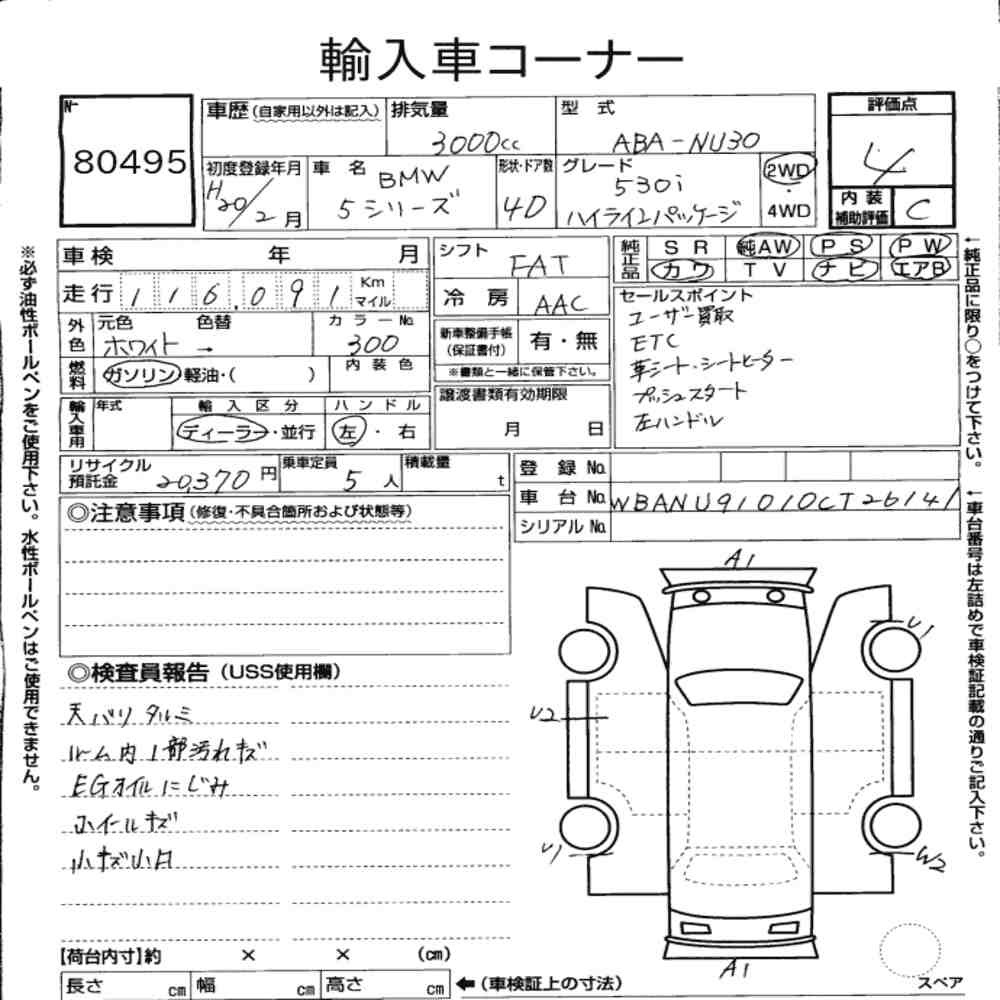 輸入車コーナー
№
80495
車歴(自家用以外は記入)
排気量
3000cc
型式
ABA-NU30
評価点
4
初度登録年月
H20/2月
車名
BMW
5シリーズ
形状・ドア数
4D
グレード
530i
ハイラインパッケージ
2WD
・
4WD
内装
補助評価
C
車検 年 月
走行 116,091 Km
マイル
シフト
FAT
冷房 AAC
純正品
SR 純AW PS PW
カワ TV ナビ エアB
外色
元色 色替
ホワイト →
カラーNo.
300
燃料
ガソリン・軽油・( )
内装色
新車整備手帳
(保証書付)
有・無
※書類と一緒に保管下さい。
セールスポイント
ユーザー買取
ETC
革シート・シートヒーター
プッシュスタート
左ハンドル
輸入車用
年式
輸入区分
ディーラー・並行
ハンドル
左・右
譲渡書類有効期限
月 日
リサイクル
預託金
20,370円
乗車定員
5人
積載量
t
登録No.
車台No. WBANU91010CT26141
シリアルNo.
◎注意事項(修復・不具合箇所および状態等)
◎検査員報告(USS使用欄)
天バリタルミ
ルーム内1部汚れキズ
EGオイルにじみ
ホイールキズ
小キズ小凹
A1
U1
U2
U1
W2
A1
スペア
【荷台内寸】約 × × (cm)
長さ cm 幅 cm 高さ cm ←(車検証上の寸法)
※必ず油性ボールペンをご使用下さい。水性ボールペンはご使用できません。
←純正品に限り○をつけて下さい。
←車台番号は左詰めで車検証記載の通りご記入下さい。